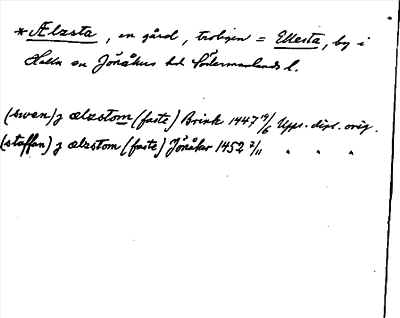 *Ælzsta, en gård, troligen = Ellesta, by i
Halla sn Jönåkers hd Södermanlands l.
(swen) j ælzstom (faste) Brink 1447 19/6 Upps. dipl. orig.
(staffan) j ælzstom (faste) Jönåker 1452 2/11 " " "